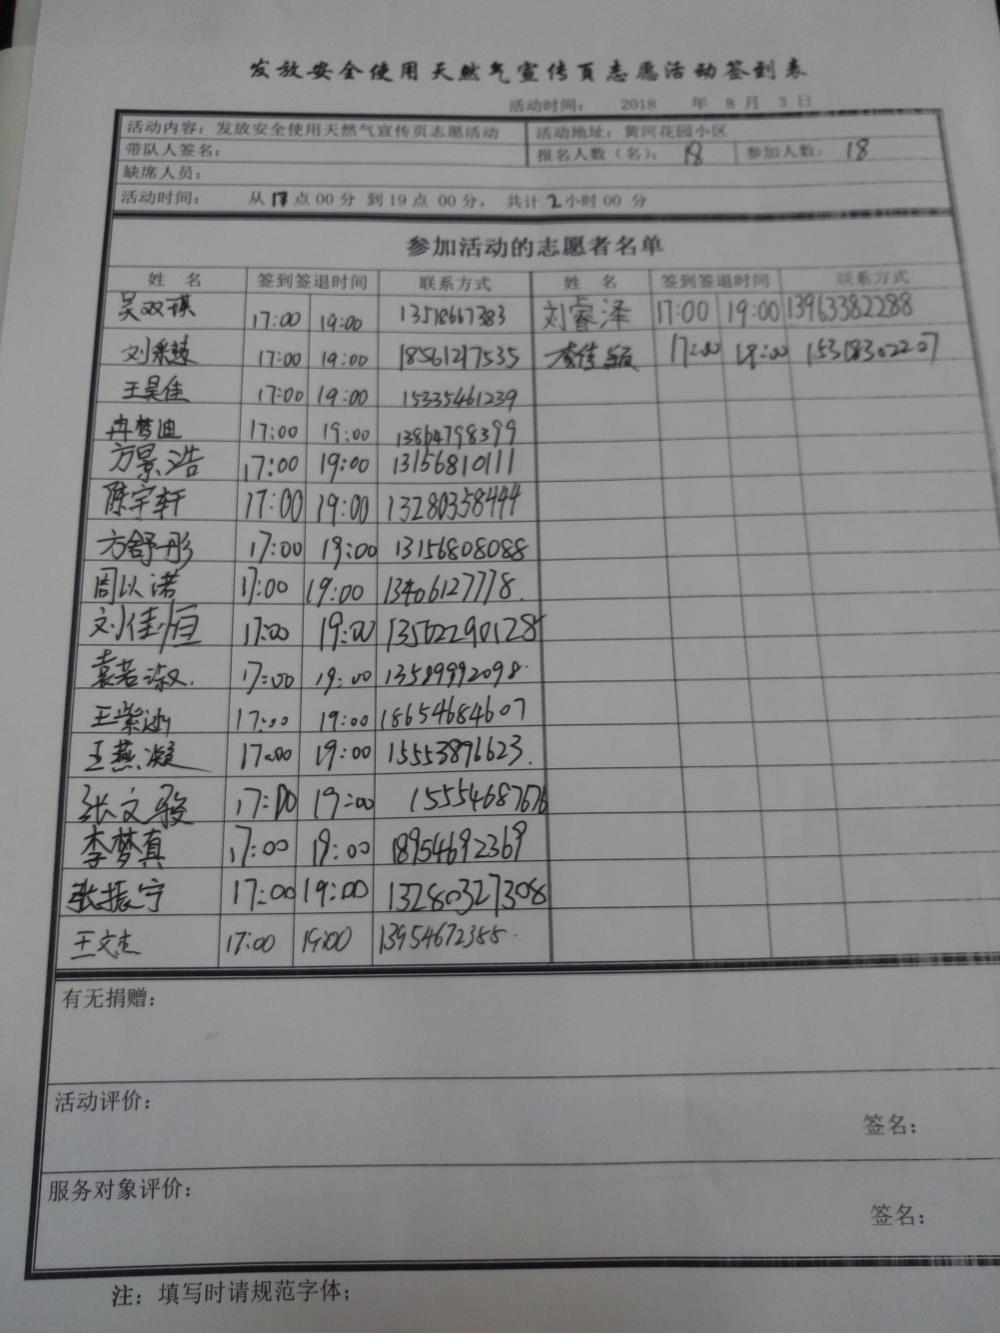 发放安全使用天然气宣传页志愿活动签到表
活动时间： 2018 年 8 月 3 日
活动内容：发放安全使用天然气宣传页志愿活动 活动地址：黄河花园小区
带队人签名： 报名人数（名）： 18 参加人数： 18
缺席人员：
活动时间： 从 17 点 00 分 到 19 点 00 分， 共计 2 小时 00 分
参加活动的志愿者名单
姓 名 签到签退时间 联系方式 姓 名 签到签退时间 联系方式
吴双琪 17:00 19:00 13518667383 刘睿泽 17:00 19:00 13963382288
刘 17:00 19:00 18561217535 李佳 17:00 19:00 15318302207
王昊佳 17:00 19:00 15335461239
冉梦迪 17:00 19:00 13864798399
方景浩 17:00 19:00 13156810111
陈宇轩 17:00 19:00 13280358444
方舒彤 17:00 19:00 13156808088
周以诺 17:00 19:00 13406127778.
刘佳恒 17:00 19:00 13562290128
袁若淑. 17:00 19:00 13589992098.
王紫 17:00 19:00 18654684607
王燕凝 17:00 19:00 15553896623.
张文骏 17:00 19:00 15554687676
李梦真 17:00 19:00 18954692369
张振宁 17:00 19:00 13280327308
王文杰 17:00 19:00 13954672355.
有无捐赠：
活动评价：
签名：
服务对象评价：
签名：
注：填写时请规范字体；